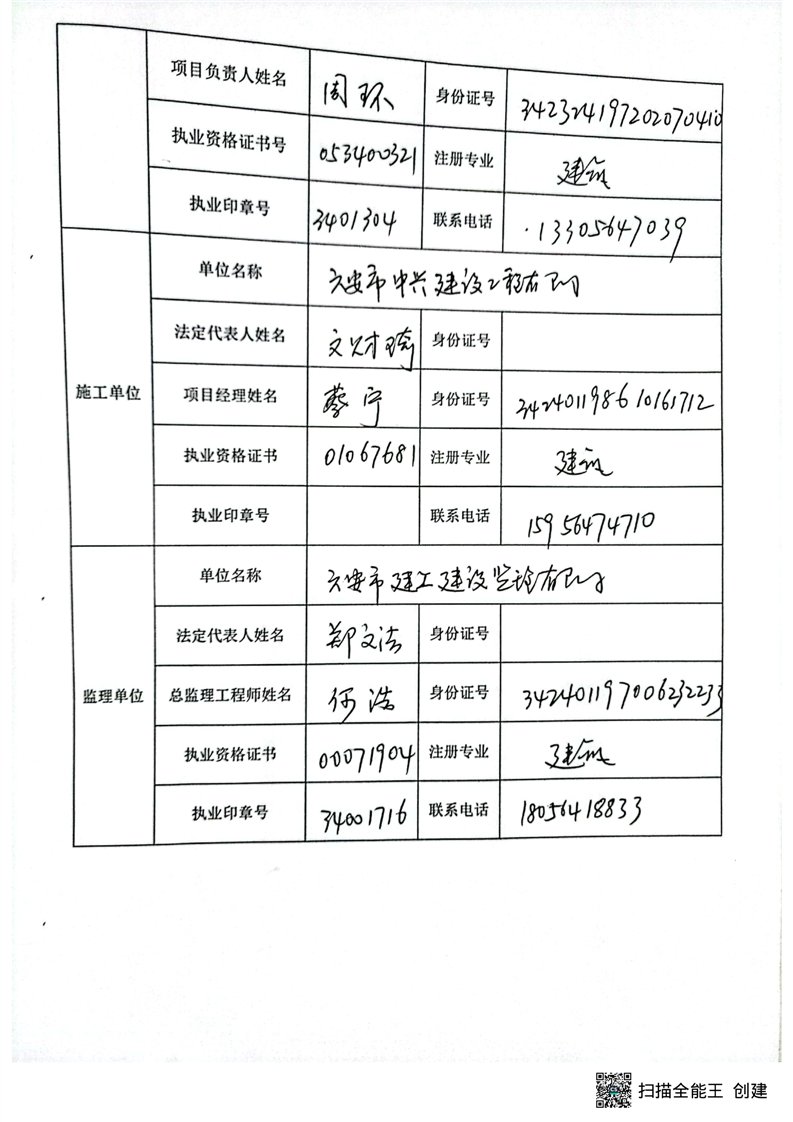 项目负责人姓名 周环 身份证号 342324197202070410
执业资格证书号 053400321 注册专业 建筑
执业印章号 3401304 联系电话 13305647039
施工单位
单位名称 六安市中兴建设工程有限公司
法定代表人姓名 文财琦 身份证号
项目经理姓名 蔡宁 身份证号 342401198610161712
执业资格证书 01067681 注册专业 建筑
执业印章号 联系电话 15956474710
监理单位
单位名称 六安市建工建设监理有限公司
法定代表人姓名 郑文洁 身份证号
总监理工程师姓名 何浩 身份证号 342401197006232233
执业资格证书 00071904 注册专业 建筑
执业印章号 34001716 联系电话 18056418833
扫描全能王 创建